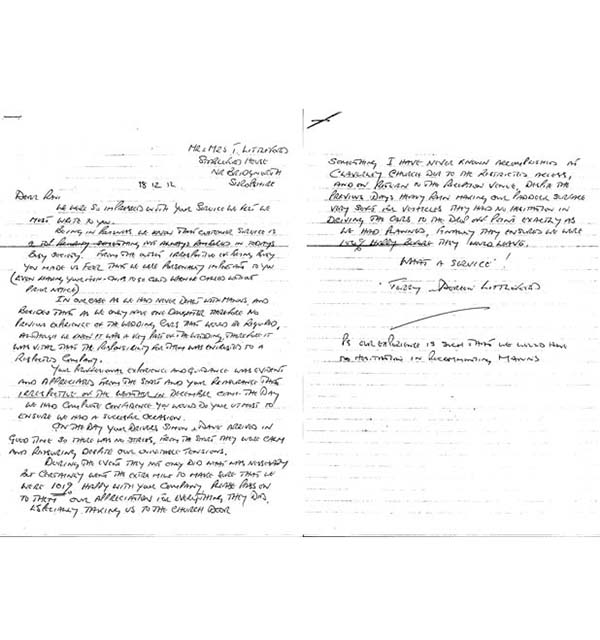 MR & MRS T. LITTLEFORD
HOUSE
NR BRIDGNORTH
18.12.12 SHROPSHIRE
DEAR
WE WERE SO IMPRESSED WITH YOUR SERVICE WE FELT WE
MUST WRITE TO YOU.
BEING IN BUSINESS WE KNOW THAT CUSTOMER SERVICE IS
NOT ALWAYS IN TODAYS
BUSY SOCIETY. FROM THE IRRESPECTIVE OF BEING BUSY
YOU MADE US FEEL THAT WE WERE PERSONALLY IMPORTANT TO YOU
(EVEN WHEN WE CALLED WITHOUT
PRIOR NOTICE)
IN OUR CASE AS WE HAD NEVER DEALT WITH MANNS, AND
BESIDES THAT AS WE ONLY HAVE ONE DAUGHTER THEREFORE NO
PREVIOUS EXPERIENCE OF THE WEDDING CARS THAT WOULD BE REQUIRED,
ALTHOUGH WE KNEW IT WAS A KEY PART OF THE WEDDING, THEREFORE IT
WAS VITAL THAT THE RESPONSIBILITY FOR THEM WAS ENTRUSTED TO A
RESPECTED COMPANY.
YOUR PROFESSIONAL EXPERIENCE AND GUIDANCE WAS EVIDENT
AND APPRECIATED FROM THE START AND YOUR REASSURANCE THAT
IRRESPECTIVE OF THE WEATHER IN DECEMBER COME THE DAY
WE HAD COMPLETE CONFIDENCE YOU WOULD DO YOUR UTMOST TO
ENSURE WE HAD A SUCCESSFUL OCCASION.
ON THE DAY YOUR DRIVERS SIMON & DAVE ARRIVED IN
GOOD TIME SO THERE WAS NO STRESS, FROM THE START THEY WERE CALM
AND REASSURING DESPITE OUR INEVITABLE TENSIONS.
DURING THE EVENT THEY NOT ONLY DID WHAT WAS NECESSARY
BUT CERTAINLY WENT THE EXTRA MILE TO MAKE SURE THAT WE
WERE 101% HAPPY WITH YOUR COMPANY. PLEASE PASS ON
TO THEM OUR APPRECIATION FOR EVERYTHING THEY DID,
ESPECIALLY TAKING US TO THE CHURCH DOOR
SOMETHING I HAVE NEVER KNOWN ACCOMPLISHED AT
CLAVERLEY CHURCH DUE TO THE RESTRICTED ACCESS,
AND ON RETURN TO THE RECEPTION VENUE, DESPITE THE
PREVIOUS DAYS HEAVY RAIN MAKING OUR PADDOCK SURFACE
VERY SOFT FOR VEHICLES THEY HAD NO HESITATION IN
DRIVING THE CARS TO THE DROP OFF POINT EXACTLY AS
WE HAD PLANNED, FINALLY THEY ENSURED WE WERE
101% HAPPY BEFORE THEY WOULD LEAVE.
WHAT A SERVICE!
TERRY DOREEN LITTLEFORD
PS OUR EXPERIENCE IS SUCH THAT WE WOULD HAVE
NO HESITATION IN RECOMMENDING MANNS